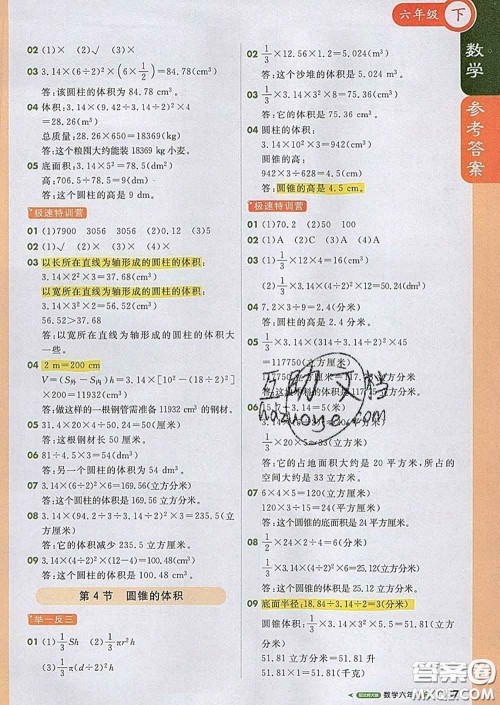 六年级 下
数学
参考答案
02 (1)× (2)√ (3)×
03 3.14×(6÷2)²×(6×1/2)=84.78(cm³)
答:该圆柱的体积为 84.78 cm³.
04 体积:3.14×(9.42÷3.14÷2)²×4
=28.26(m³)
总质量:28.26×650=18369(kg)
答:这个粮囤大约能装 18369 kg 小麦.
05 底面积:3.14×5²=78.5(dm²)
高:706.5÷78.5=9(dm)
答:这个圆柱的高是 9 dm.
极速特训营
01 (1)7900 3056 (2)0.12 (3)5
02 (1)× (2)√ (3)× (4)×
03 以长所在直线为轴形成的圆柱的体积:
3.14×2²×3=37.68(cm³)
以宽所在直线为轴形成的圆柱的体积:
3.14×3²×2=56.52(cm³)
56.52>37.68
答:以宽所在直线为轴形成的圆柱的体积大
一些.
04 2 m=200 cm
V=(S外-S内)h=3.14×[10²-(18÷2)²]
×200=11932(cm³)
答:做这样的一根钢管需准备 11932 cm³ 的钢材.
答:这根钢材长 50 厘米.
06 81÷4.5×3=54(dm³)
答:另一个圆柱的体积是 54 dm³.
07 3.14×(6÷2)²×6=169.56(立方分米)
答:这个圆柱的体积是 169.56 立方分米.
08 3.14×(94.2÷3÷3.14÷2)²×3=235.5(立
方厘米)
答:它的体积减少 235.5 立方厘米.
09 3.14×(4÷2)²×8=100.48(cm³)
答:这个圆柱的体积是 100.48 cm³.
第 4 节 圆锥的体积
举一反三
01 (1)1/3Sh (2)1/3πr²h
(3)1/3π(d÷2)²h
02 1/3×12.56×1.2=5.024(m³)
答:这个沙堆的体积是 5.024 m³.
03 1/3×3.14×3²×8=75.36(cm³)
答:它的体积是 75.36 cm³.
04 圆锥的体积:
圆锥的高:
942×3÷628=4.5(cm)
答:圆锥的高是 4.5 cm.
极速特训营
01 (1)70.2 (2)50 (3)150
02 (1)C (2)A (3)A
03 (1)1/3×12×4=16(cm³)
04 7.2×3÷9=2.4(分米)
答:圆柱的高是 2.4 分米.
=117750(立方厘米)
15.7÷3.14÷2
答:它的占地面积大约是 20 平方米,所占的
空间大约是 33 立方米.
07 6×4×5=120(立方厘米)
答:这个圆锥的底面积是 24 平方厘米.
08 1/2×24×2=24(立方分米)
1/3×3.14×(4÷2)²×6=25.12(立方分米)
答:这个圆锥的体积是 25.12 立方分米.
09 底面半径:18.84÷3.14÷2=3(分米)
51.81×1=51.81(千克)
互助文档
hazuoye.com
数学六年
答案圈
MXQE.COM